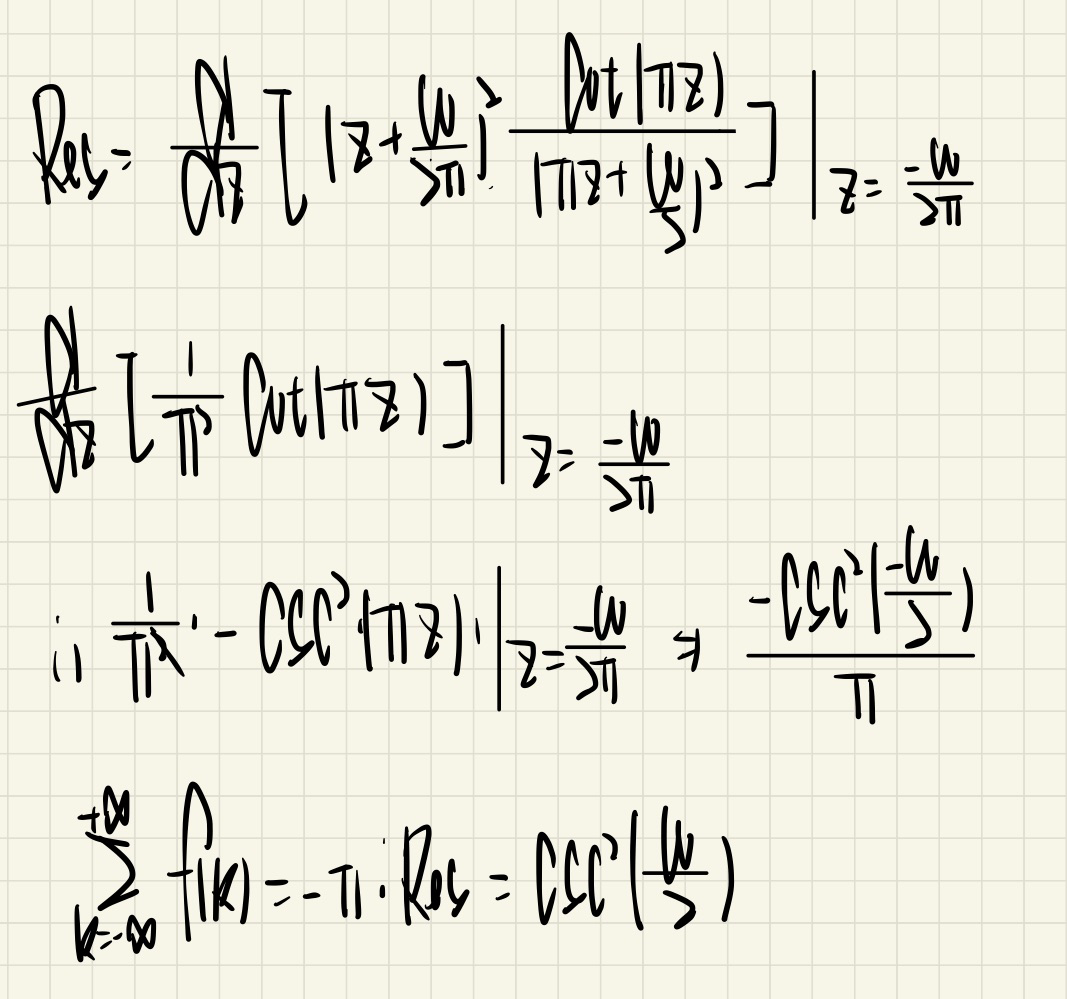 Res = d/dz [ (z + ω/2π)² · cot(πz) / (πz + ω/2)² ] | z = -ω/2π
d/dz [ 1/π² cot(πz) ] | z = -ω/2π
∴ 1/π² · - csc²(πz) · π | z = -ω/2π ⇒ -csc²(-ω/2) / π
+∞ Σ k=-∞ f(k) = -π · Res = csc²(ω/2)